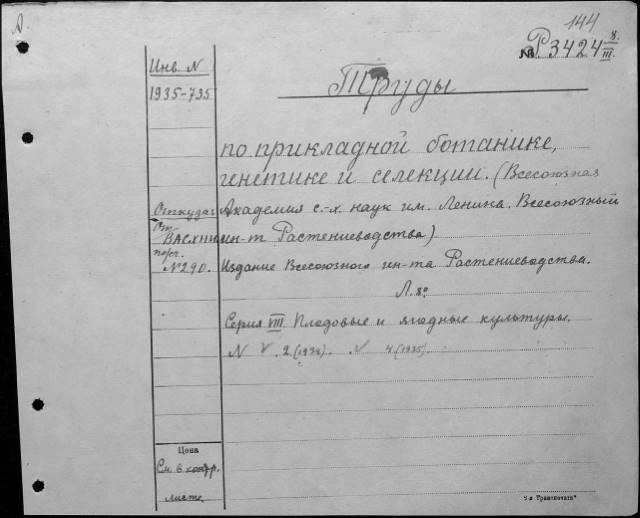 144
№ Р3424 8/III.
Инв N
1935-735
Труды
по прикладной ботанике,
генетике и селекции. (Всесоюзная
Откуда: Академия с.-х. наук им. Ленина. Всесоюзный
От
ВАСХНИ ин-т Растениеводства)
№290. Издание Всесоюзного ин-та Растениеводства.
Л. 8°
Серия VIII. Плодовые и ягодные культуры.
N 2 (1932). 4 (1935).
Цена
См. в контр.
листе.